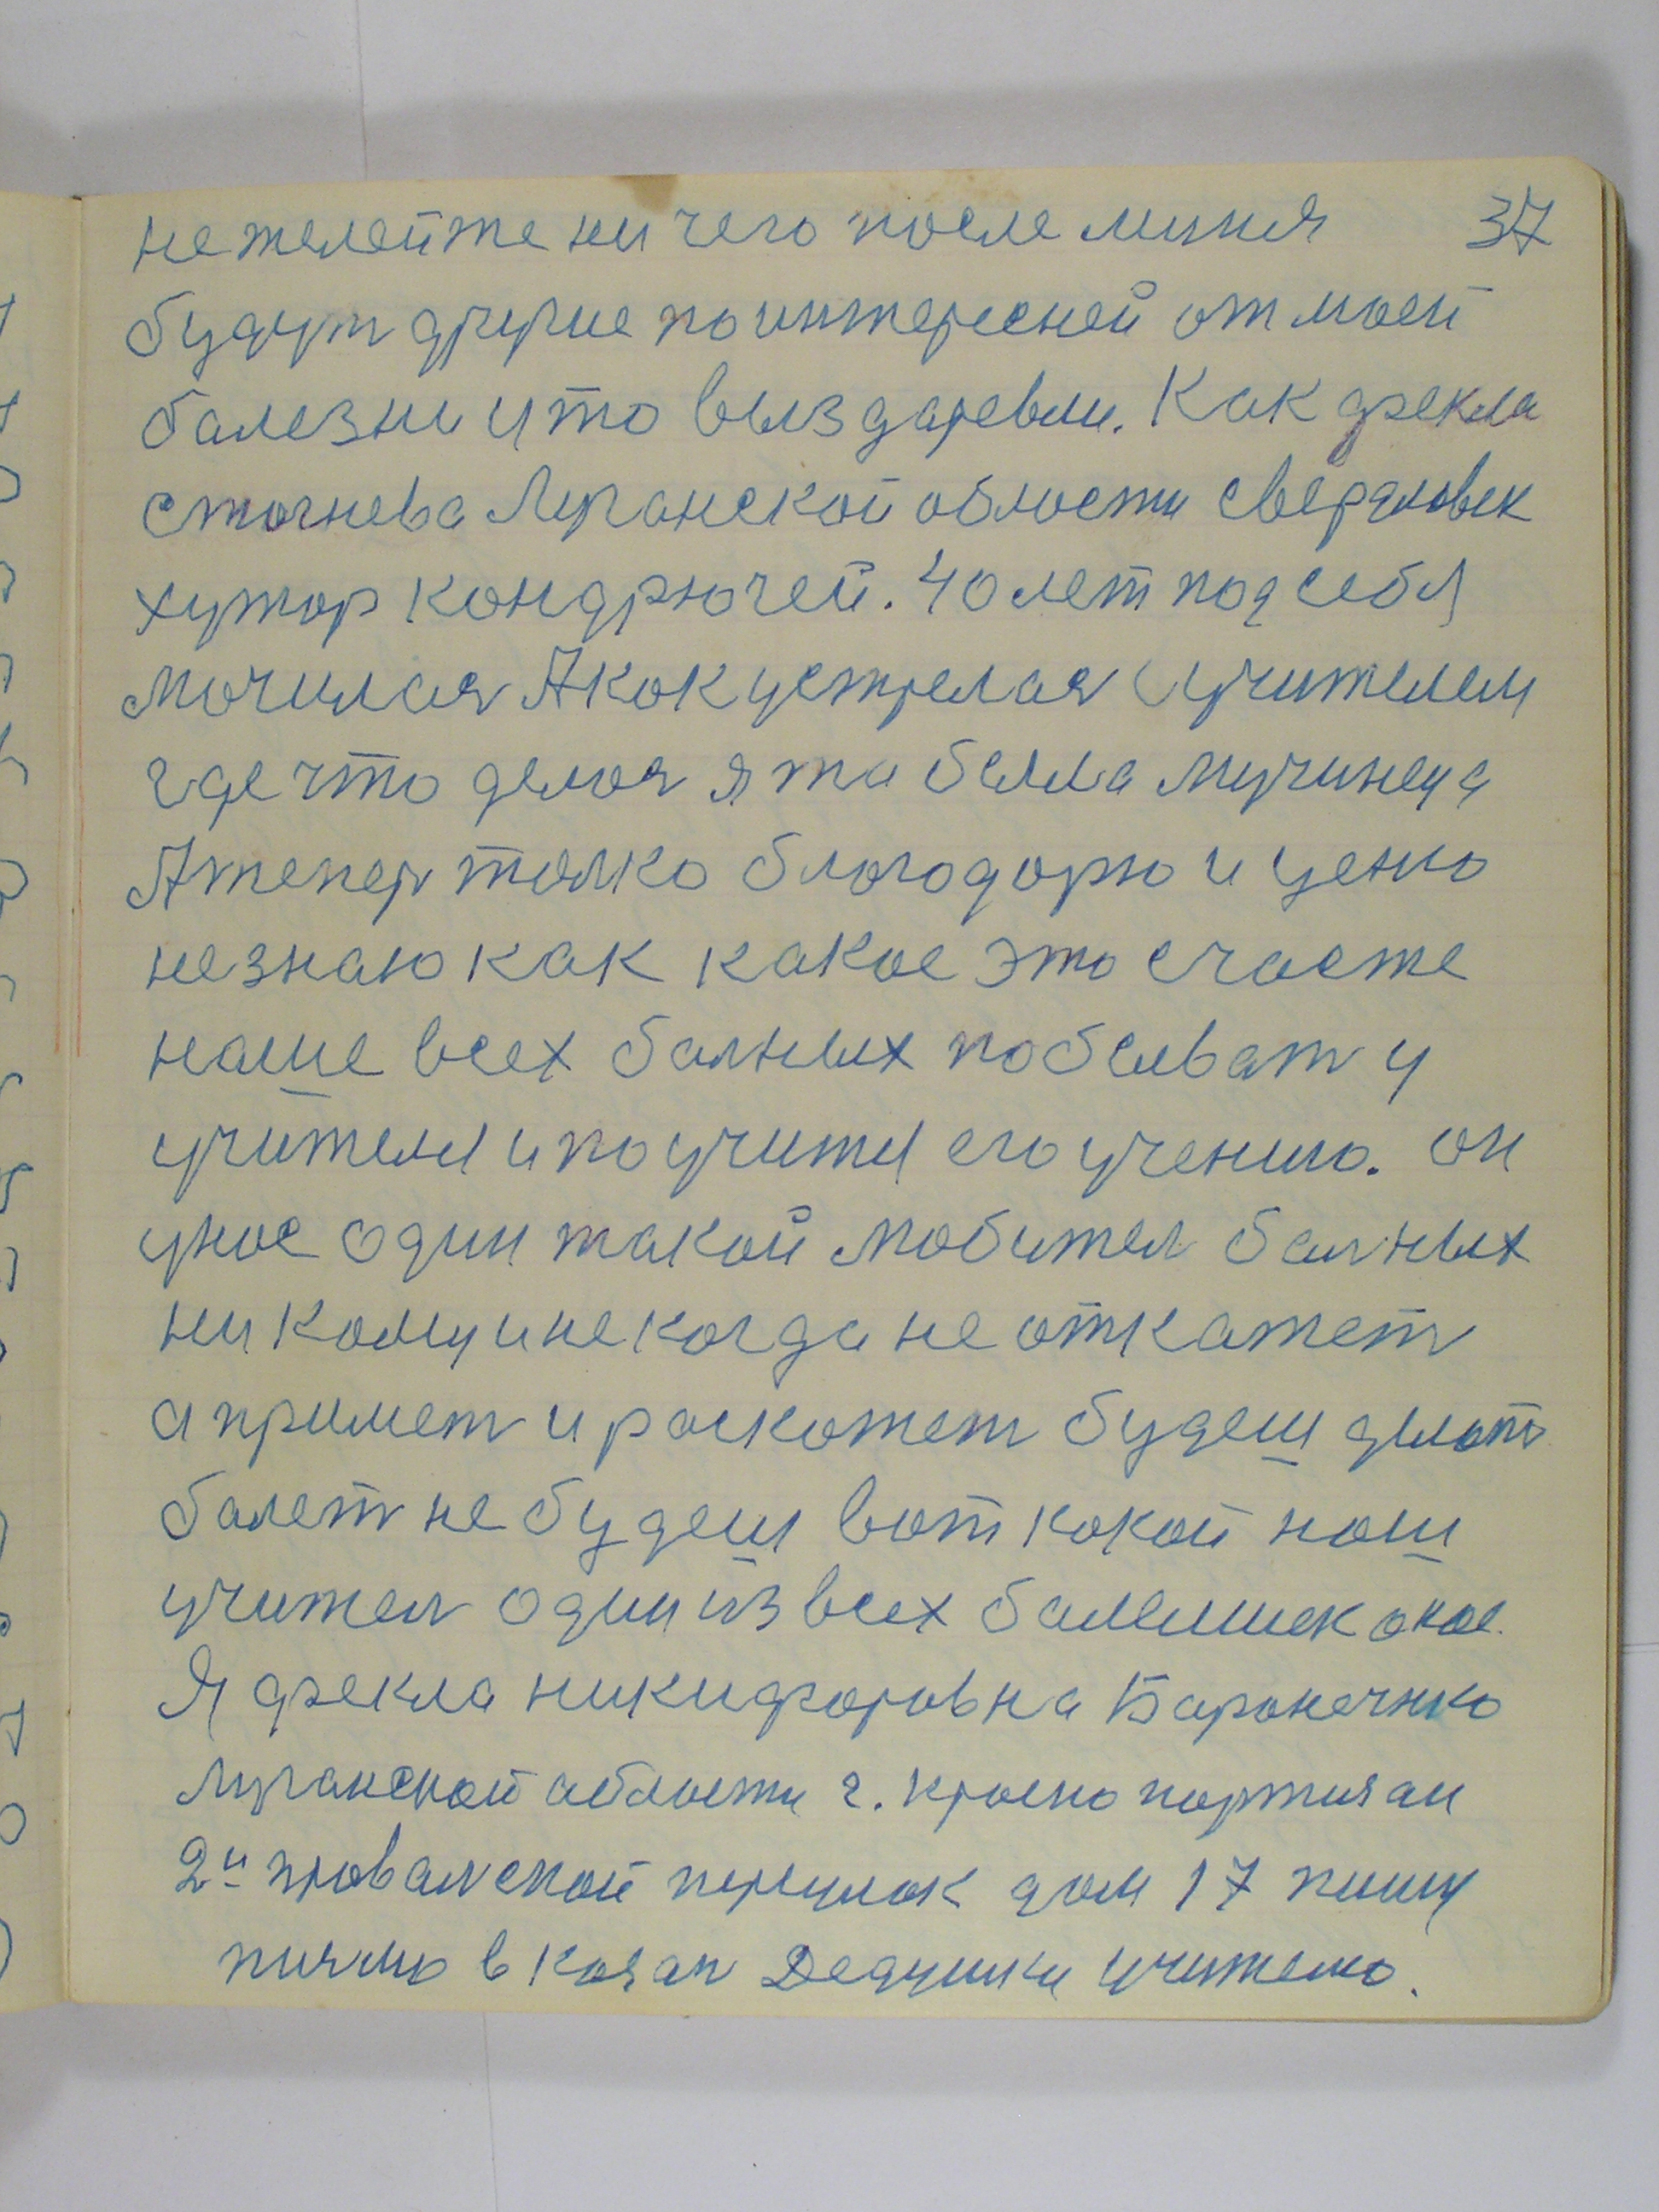 не желейте ни чего после миня 37
будут другие по интересней от моей
балезни и то выздаревли. Как фекла
стогнева Луганской области свердловск
хутор кондрючей. 40 лет под себя
мочилася А как устрелася сучителем
где что делося я та была мучинеца
А тепер толко благодарю и ценю
не знаю как какое это счасте
наше всех балных побыват у
учителя и по учитя его учению. он
унас один такой любител балных
ни кому и не когда не откажет
а примет и раскажет будеш делат
балет не будеш вот какой наш
учител один из всех
Я фекла никифоровна Бароненко
Луганской области г. красно партизан
2й провалской переулок дом 17 пишу
писмо в Дедушки учителю.